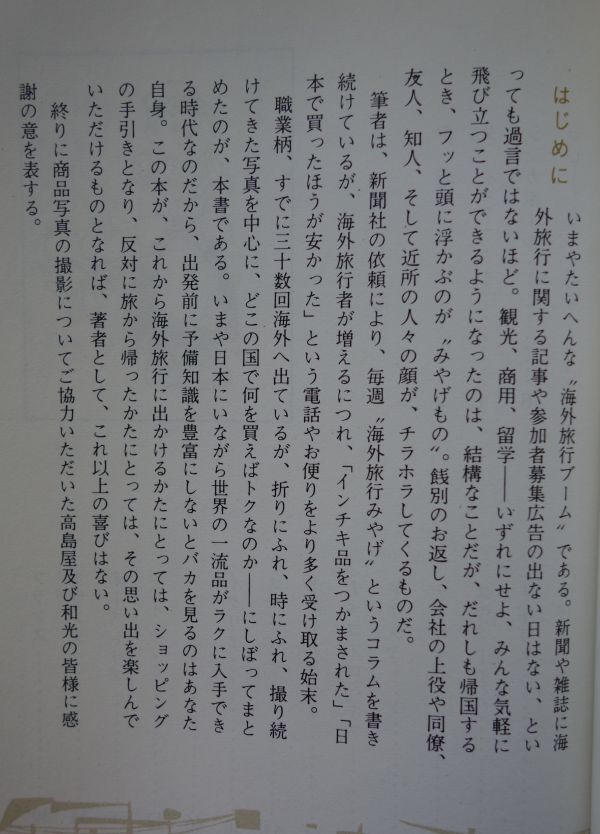 はじめに
いまやたいへんな〝海外旅行ブーム〟である。新聞や雑誌に海
外旅行に関する記事や参加者募集広告の出ない日はない、とい
っても過言ではないほど。観光、商用、留学――いずれにせよ、みんな気軽に
飛び立つことができるようになったのは、結構なことだが、だれしも帰国する
とき、フッと頭に浮かぶのが〝みやげもの〟。餞別のお返し、会社の上役や同僚、
友人、知人、そして近所の人々の顔が、チラホラしてくるものだ。
筆者は、新聞社の依頼により、毎週〝海外旅行みやげ〟というコラムを書き
続けているが、海外旅行者が増えるにつれ、「インチキ品をつかまされた」「日
本で買ったほうが安かった」という電話やお便りをより多く受け取る始末。
職業柄、すでに三十数回海外へ出ているが、折りにふれ、時にふれ、撮り続
けてきた写真を中心に、どこの国で何を買えばトクなのか――にしぼってまと
めたのが、本書である。いまや日本にいながら世界の一流品がラクに入手でき
る時代なのだから、出発前に予備知識を豊富にしないとバカを見るのはあなた
自身。この本が、これから海外旅行に出かけるかたにとっては、ショッピング
の手引きとなり、反対に旅から帰ったかたにとっては、その思い出を楽しんで
いただけるものとなれば、著者として、これ以上の喜びはない。
終りに商品写真の撮影についてご協力いただいた高島屋及び和光の皆様に感
謝の意を表する。